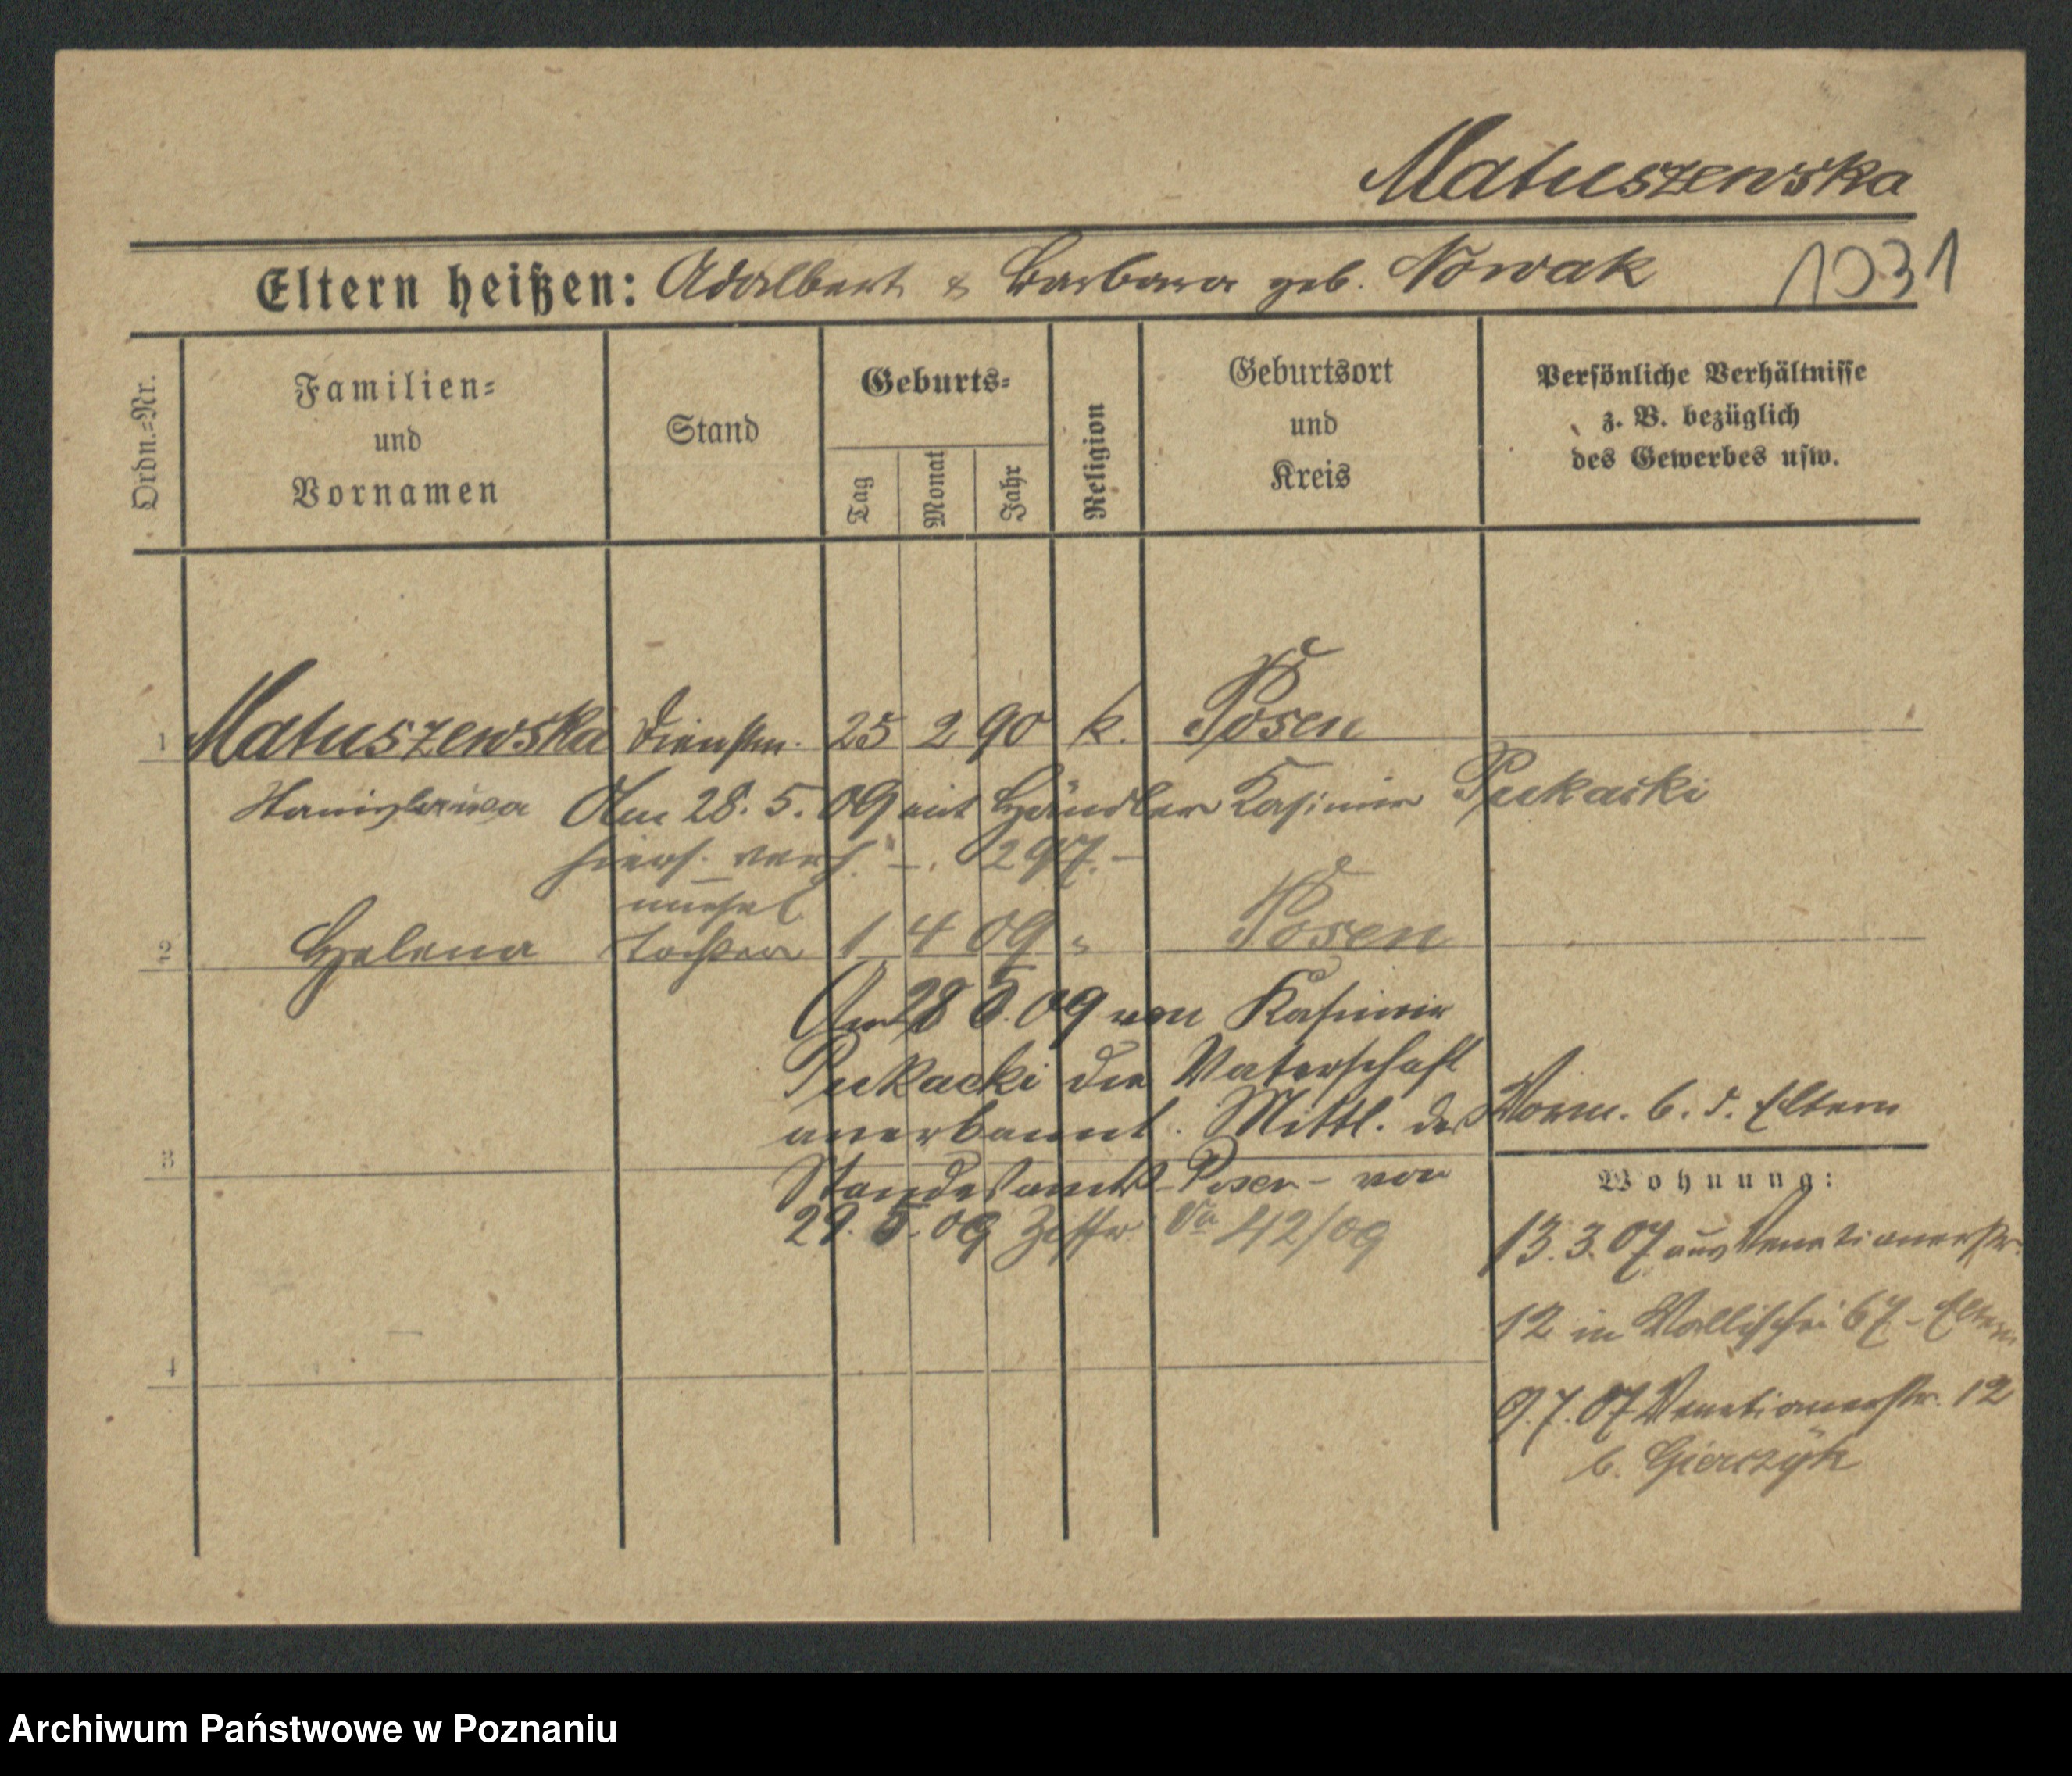 Matuszewska
Eltern heißen: Adalbert & Barbara geb. Nowak 1031
Ordn.-Nr.
Familien-
und
Vornamen
Stand
Geburts-
Tag
Monat
Jahr
Religion
Geburtsort
und
Kreis
Persönliche Verhältnisse
z. B. bezüglich
des Gewerbes usw.
1 Matuszewska Dienstm. 25 2 90 k. Posen
Stanislawa Am 28. 5. 09 mit Händler Kasimir
hiers. verh. 297.
unehel.
2 Helena Tochter 1 4 09 " Posen
Am 28 5. 09 von Kasimir
die Vaterschaft
anerkannt. Mittl. des
3
Standesamts Posen von
29. 5. 09 42/09
4
Vorm. b. d. Eltern
Wohnung:
13. 3. 07 aus Venetianerstr.
12 in Wallischei 67 - Eltern
9. 7. 07 Venetianerstr. 12
b.
Archiwum Państwowe w Poznaniu